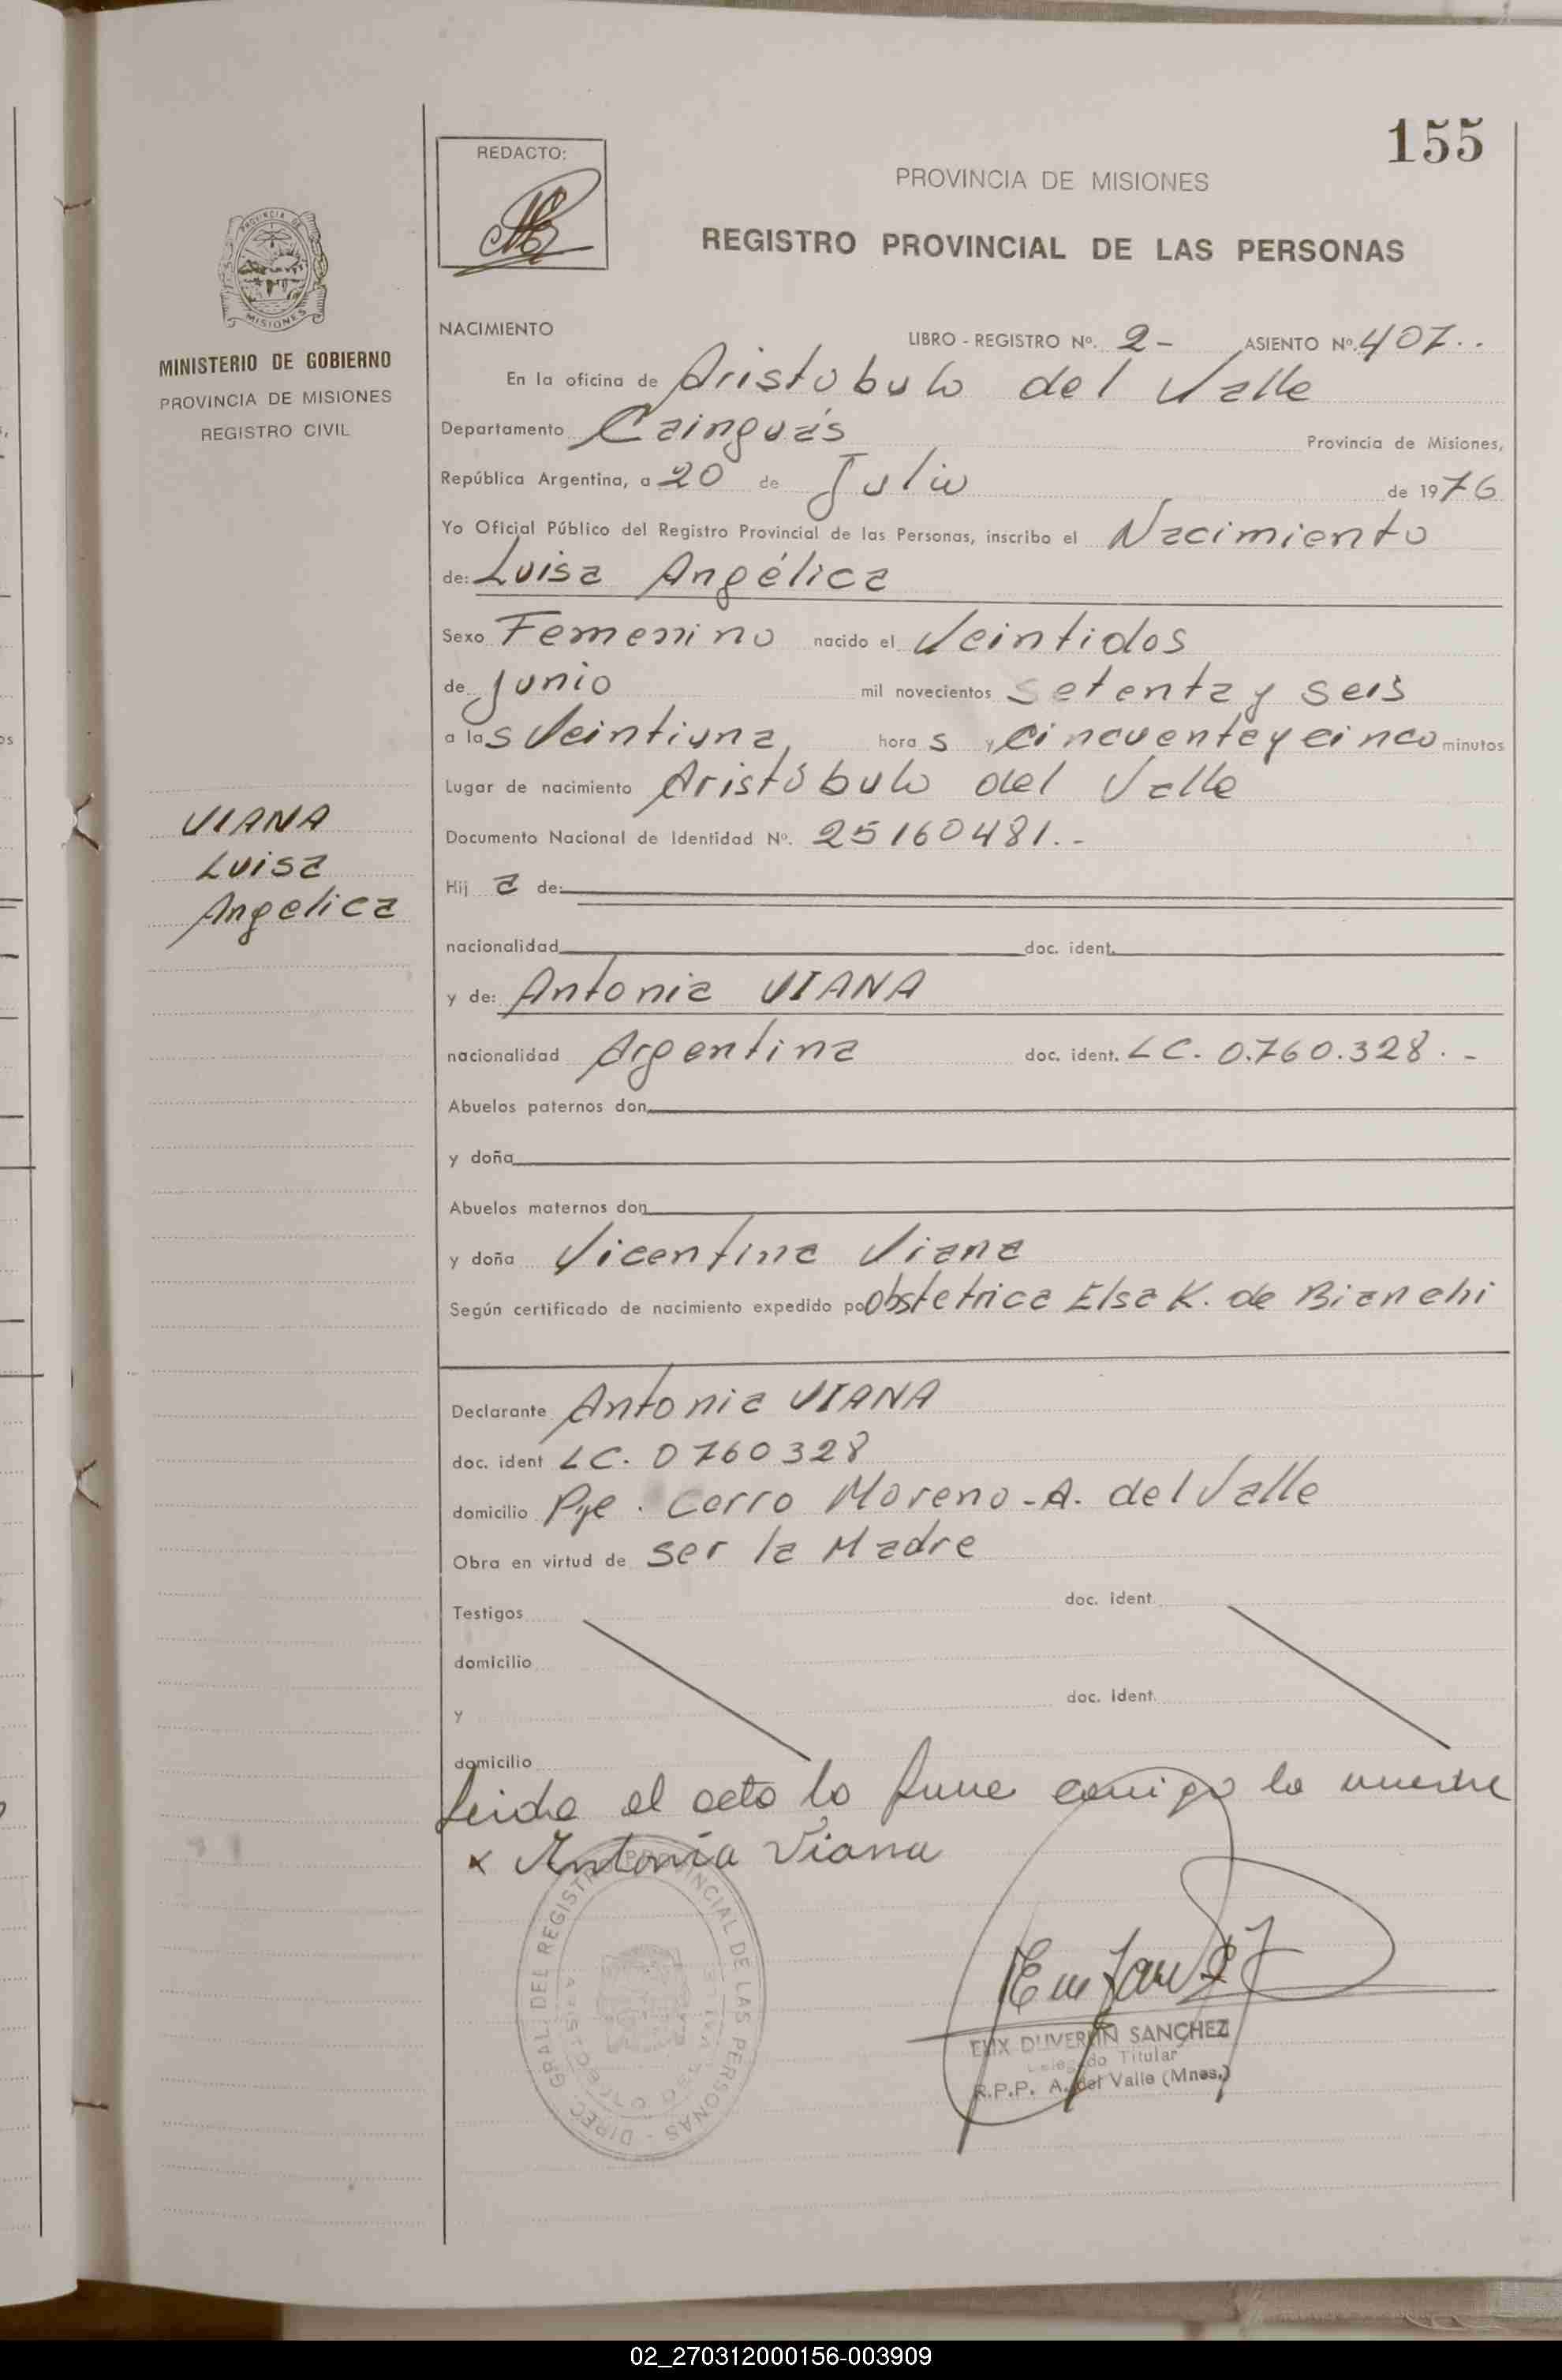 155
REDACTO:
PROVINCIA DE MISIONES
REGISTRO PROVINCIAL DE LAS PERSONAS
PROVINCIA DE
MISIONES
MINISTERIO DE GOBIERNO
PROVINCIA DE MISIONES
REGISTRO CIVIL
NACIMIENTO LIBRO - REGISTRO Nº. 2- ASIENTO Nº. 407..
En la oficina de Aristobulo del Valle
Departamento Cainguás Provincia de Misiones,
República Argentina, a 20 de Julio de 1976
Yo Oficial Público del Registro Provincial de las Personas, inscribo el Nacimiento
de: Luisa Angélica
Sexo Femenino nacido el Veintidos
de junio mil novecientos setenta y seis
a las Veintiuna, horas y cincuenta y cinco minutos
Lugar de nacimiento Aristóbulo del Valle
VIANA
Luisa
Angelica
Documento Nacional de Identidad Nº. 25160481.-
Hij a de:
nacionalidad doc. ident.
y de: Antonia VIANA
nacionalidad Argentina doc. ident. LC. 0.760.328.-
Abuelos paternos don
y doña
Abuelos maternos don
y doña Vicentina Viana
Según certificado de nacimiento expedido po Obstetrica Elsa K. de Bianchi
Declarante Antonia VIANA
doc. ident LC. 0760328
domicilio Pje. Cerro Moreno-A. del Valle
Obra en virtud de ser la Madre
Testigos doc. ident
domicilio
y doc. ident.
domicilio
leida el acta la firma
x Antonía Viana
DIREC. GRAL. DEL REGISTRO PROVINCIAL DE LAS PERSONAS
SANCHEZ
Delegado Titular
R.P.P. A. del Valle (Mnes.)
02_270312000156-003909